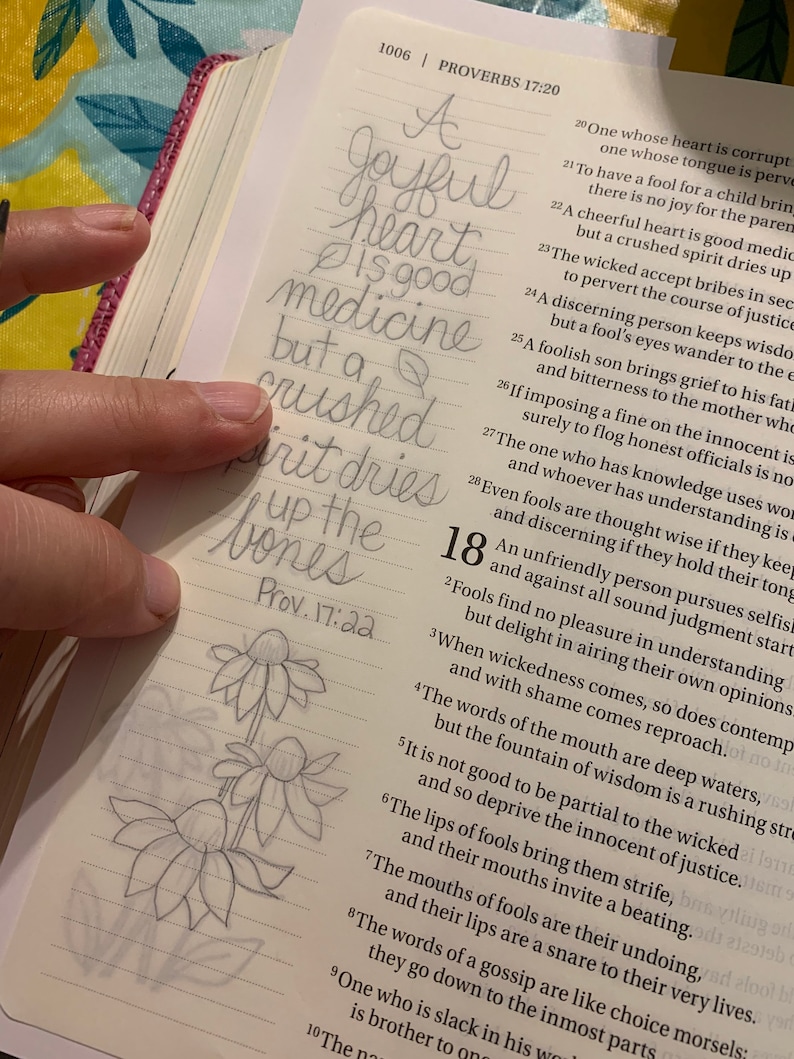 1006 | PROVERBS 17:20
A
Joyful
heart
is good
medicine
but a
crushed
spirit dries
up the
bones
Prov. 17:22
20 One whose heart is corrupt
one whose tongue is perve
21 To have a fool for a child bring
there is no joy for the paren
22 A cheerful heart is good medic
but a crushed spirit dries up
23 The wicked accept bribes in sec
to pervert the course of justice
24 A discerning person keeps wisdo
but a fool's eyes wander to the e
25 A foolish son brings grief to his fath
and bitterness to the mother who
26 If imposing a fine on the innocent is
surely to flog honest officials is no
27 The one who has knowledge uses wor
and whoever has understanding is
28 Even fools are thought wise if they keep
and discerning if they hold their tong
18 An unfriendly person pursues selfish
and against all sound judgment start
2 Fools find no pleasure in understanding
but delight in airing their own opinions.
3 When wickedness comes, so does contemp
and with shame comes reproach.
4 The words of the mouth are deep waters,
but the fountain of wisdom is a rushing stre
5 It is not good to be partial to the wicked
and so deprive the innocent of justice.
6 The lips of fools bring them strife,
and their mouths invite a beating.
7 The mouths of fools are their undoing,
and their lips are a snare to their very lives.
8 The words of a gossip are like choice morsels;
they go down to the inmost parts
9 One who is slack in his work
is brother to one
10 The na